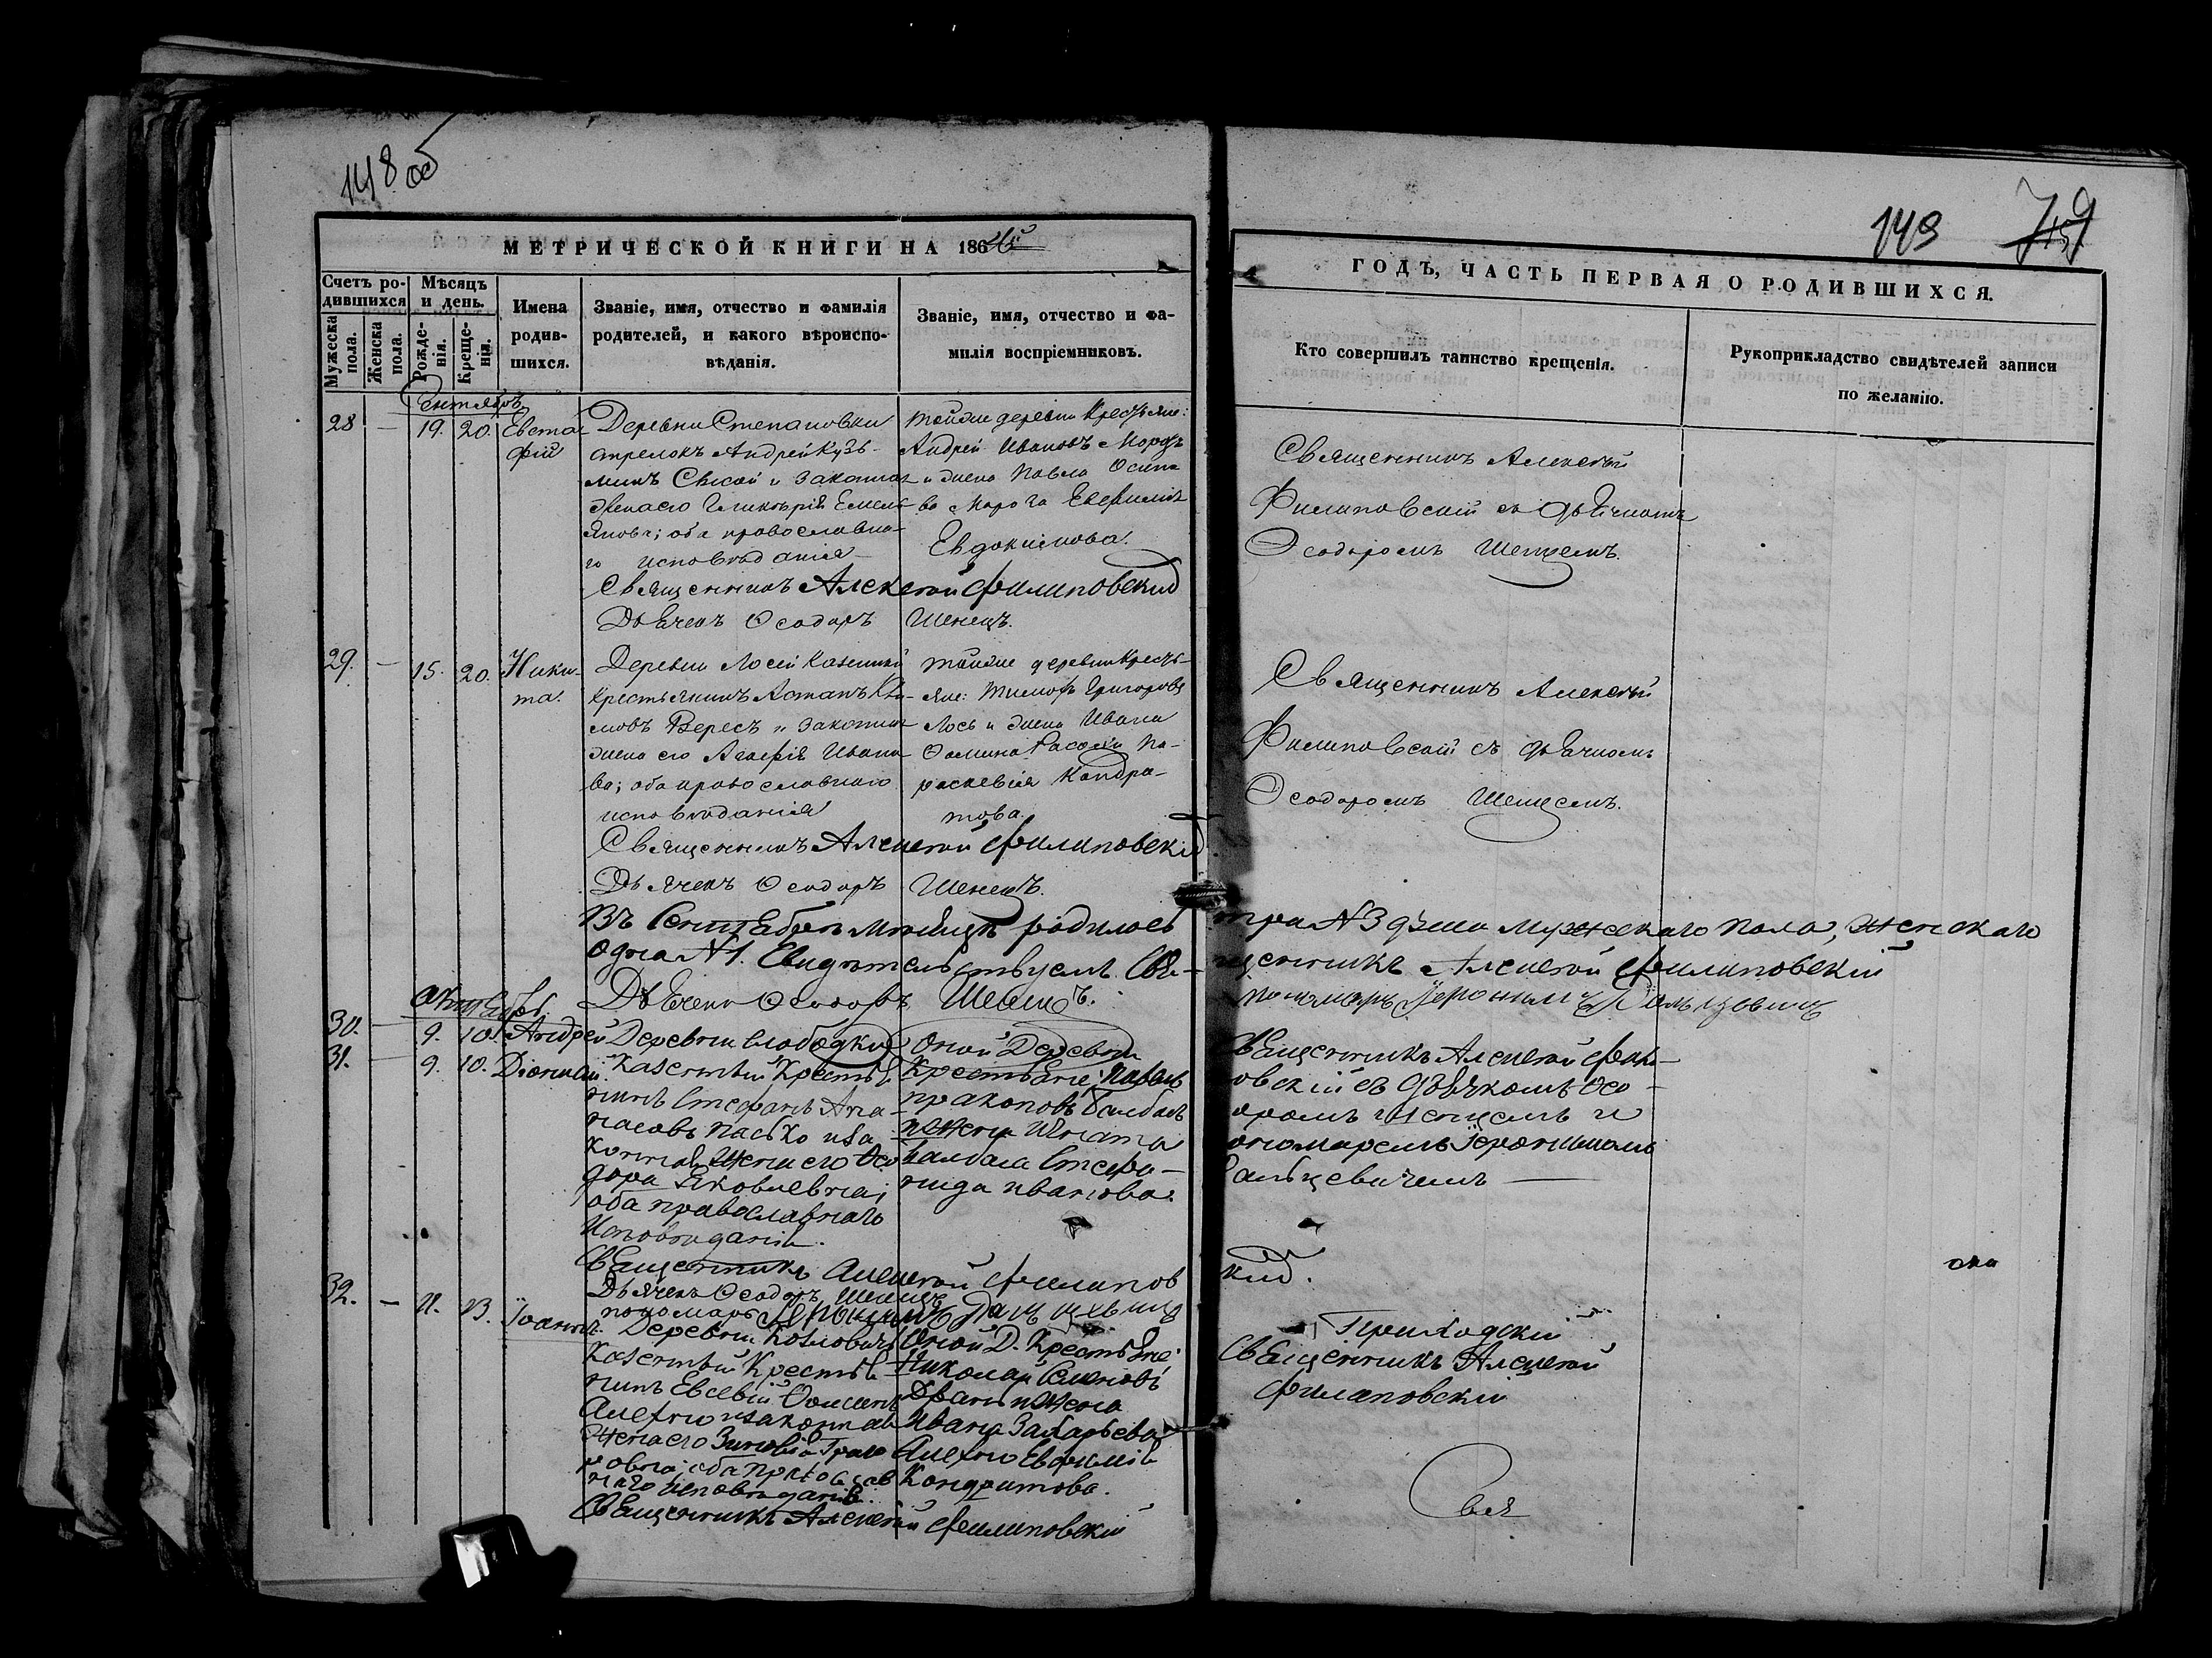 148 об
149
МЕТРИЧЕСКОЙ КНИГИ НА 186
ГОДЪ, ЧАСТЬ ПЕРВАЯ О РОДИВШИХСЯ.
Счетъ ро-
дившихся
Мѣсяцъ
и день.
Мужеска
пола.
Женска
пола.
Рожде-
нія.
Креще-
нія.
Имена
родив-
шихся.
Званіе, имя, отчество и фамилія
родителей, и какого вѣроиспо-
вѣданія.
Званіе, имя, отчество и фа-
милія воспріемниковъ.
Кто совершилъ таинство крещенія.
Рукоприкладство свидѣтелей записи
по желанію.
28 — 19. 20. Евста-
фій
Деревни Степановки
Андрей Кузь-
минъ и законная
Емель-
янова; оба православна-
го исповѣданія
тойже деревни Крестьяне:
Андрей Ивановъ Морозъ
и жена Павла Осипо-
ва Мороза Евфимія
Евдокимова.
Священникъ Алексѣй
Филиповскій съ дьячкомъ
Ѳеодоромъ Шенцемъ.
Священникъ Алексѣй Филиповскій
Дьячекъ Ѳеодоръ Шенецъ.
29. — 15. 20. Ники-
та.
Деревни Лосей Казенный
Крестьянинъ
Вересъ и законная
жена его Агафія Ивано-
ва; оба православнаго
исповѣданія
тойже деревни Кресть-
яне: Тимофей Григоровъ
Лось и жена Ивана
Па-
раскевія Кондра-
това.
Священникъ Алексѣй
Филиповскій съ дьячкомъ
Ѳеодоромъ Шенцемъ.
Священникъ Алексѣй Филиповскій
Дьячекъ Ѳеодоръ Шенецъ.
Въ Сентябрѣ мѣсяцѣ родилось три №3 душы мужескаго пола, женскаго
одна №1. Свидѣтельствуемъ. Священникъ Алексѣй Филиповскій
Дьячекъ Ѳеодоръ Шенецъ.
Октябрь.
30. — 9. 10. Андрей
31. — 9. 10. Діонисій.
Деревни Слободки
Казенный Крестья-
нинъ Стефанъ Апа-
насовъ Пасько и за-
конная жена его Ѳео-
дора Яковлевна;
оба православнаго
Исповѣданія.
Оной Деревни
Крестьяне: Павелъ
Пракоповъ
и жена Игната
Стефа-
нида Иванова.
Священникъ Алексѣй Фили-
овскій съ дьячкомъ Ѳео-
оромъ Шенцемъ и
ономаремъ Іеронимомъ
Священникъ Алексѣй Филипов
кій.
Дьячекъ Ѳеодоръ Шенецъ
пономарь
32. — 11. 13. Іоаннъ.
Деревни Козловичъ
Казенный Крестья-
нинъ Евсевій Ѳоминъ
Алехно и законная
жена его Зиновія
исповѣданія.
Оной Д. Крестьяне:
Николай Семеновъ
и жена
Ивана Захарьева
Алехно Евфимія
Кондратова.
Приходскій
Священникъ Алексѣй
Филиповскій
Священникъ Алексѣй Филиповскій